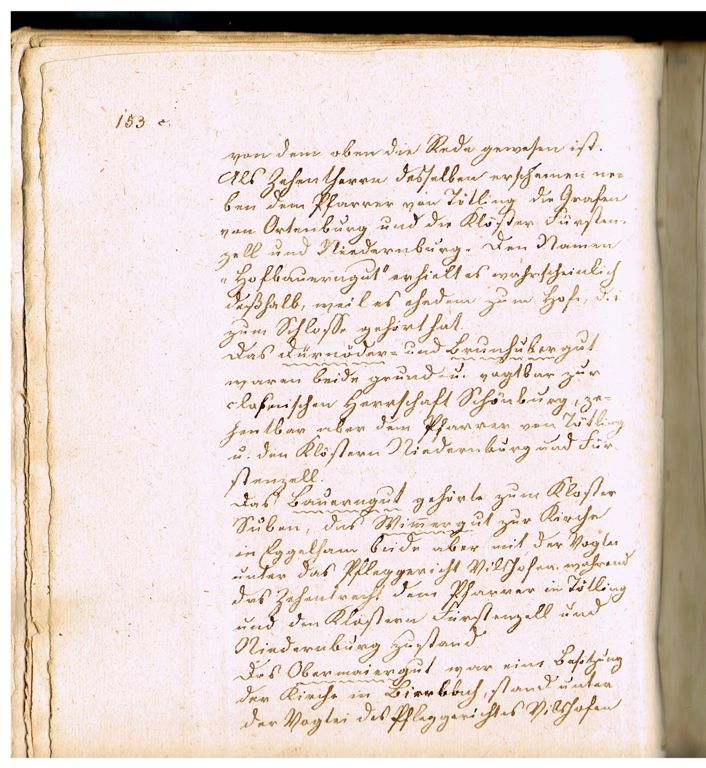 153 c.
von dem oben die Rede gewesen ist.
Als Zehentherrn desselben erscheinen ne-
ben dem Pfarrer von Tötling die Grafen
von Ortenburg und die Klöster Fürsten-
zell und Niedernburg. Den Namen
"Hofbauerngut" erhielt es wahrscheinlich
deßhalb, weil es ehedem zum Hofe, d. i
zum Schlosse gehört hat.
Das Dürnöder- und Brunhubergut
waren beide grund- u. vogtbar zur
closnischen Herrschaft Schönburg, ze-
hentbar aber dem Pfarrer von Tötling
u. den Klöstern Niedernburg und Für-
stenzell.
Das Bauerngut gehörte zum Kloster
Suben, das Wimergut zur Kirche
in Eggelham beide aber mit der Vogtei
unter das Pfleggericht Vilshofen, während
das Zehentrecht dem Pfarrer in Tötling
und den Klöstern Fürstenzell und
Niedernburg zustand
Das Obermaiergut war eine Besitzung
der Kirche in Birnbach, stand unter
der Vogtei des Pfleggerichtes Vilshofen